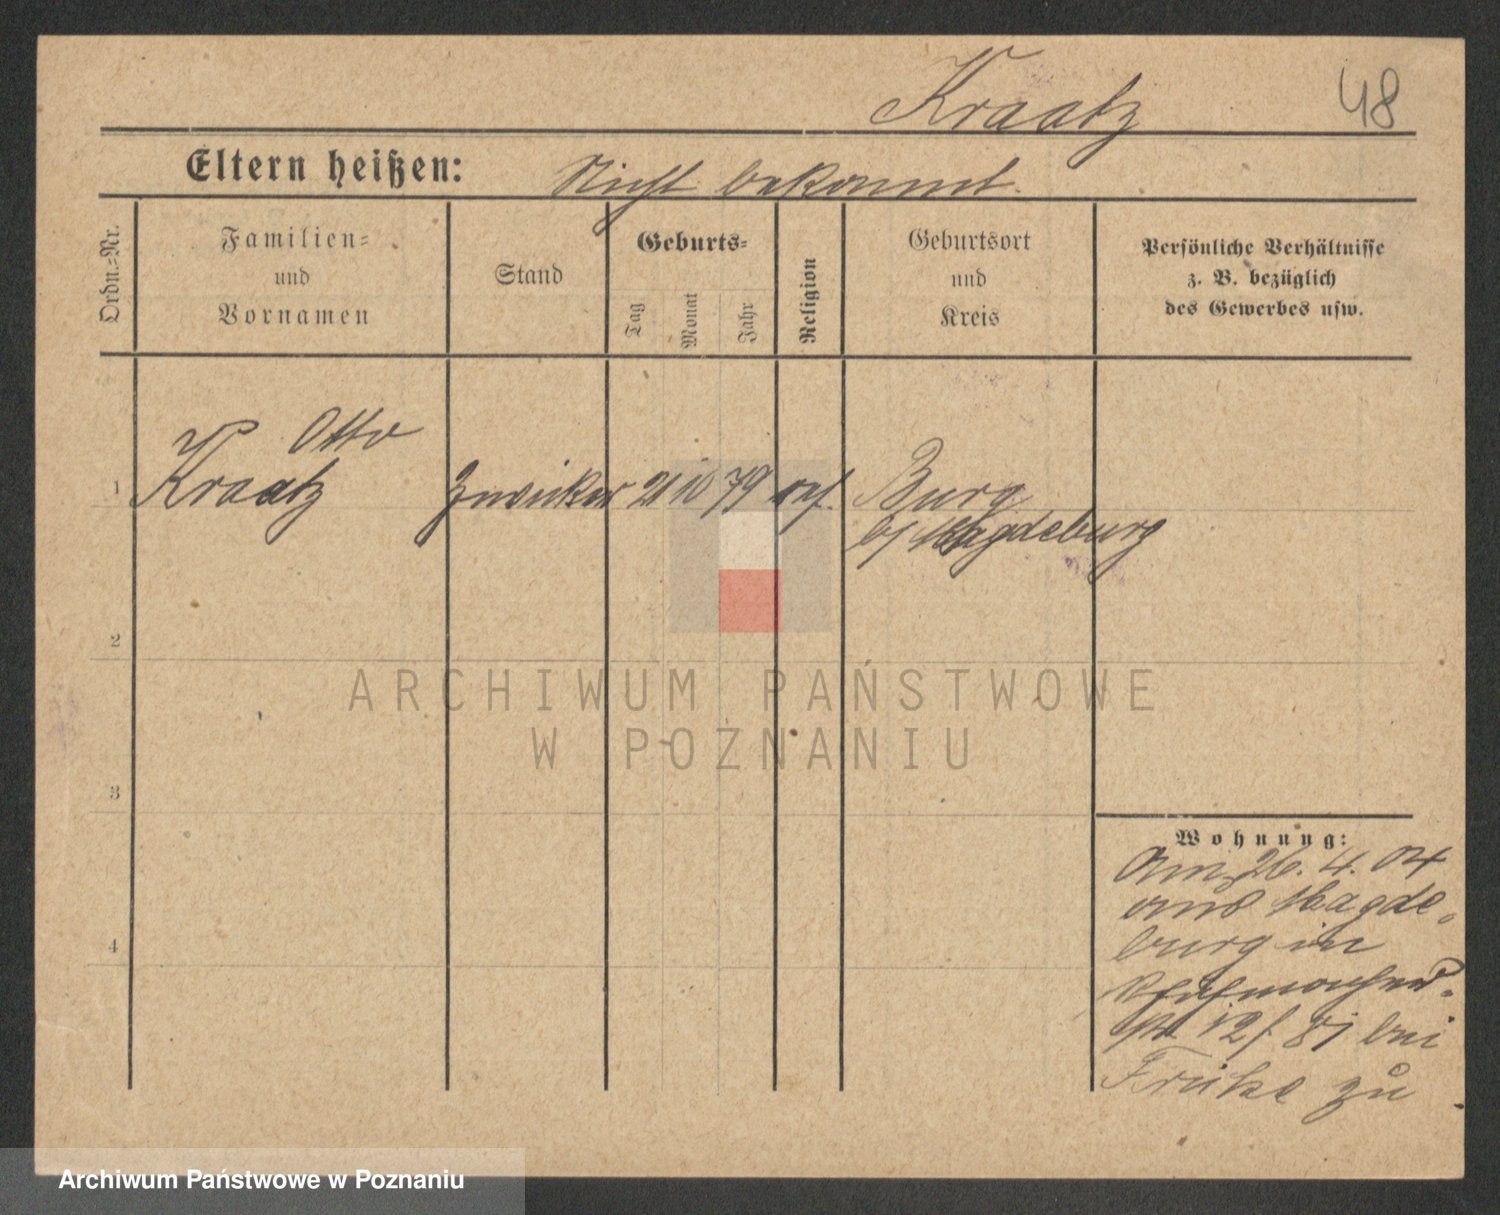 Kraatz
48
Eltern heißen: Nicht bekannt.
Ordn.-Nr.
Familien-
und
Vornamen
Stand
Geburts-
Tag
Monat
Jahr
Religion
Geburtsort
und
Kreis
Persönliche Verhältnisse
z. B. bezüglich
des Gewerbes usw.
Otto
1 Kraatz Zwicker 21 10 79 ref. Burg
b/ Magdeburg
2
3
4
ARCHIWUM PAŃSTWOWE
W POZNANIU
Wohnung:
Am 26. 4. 04
aus Magde-
burg in
12 f. 81 bei
zu
Archiwum Państwowe w Poznaniu